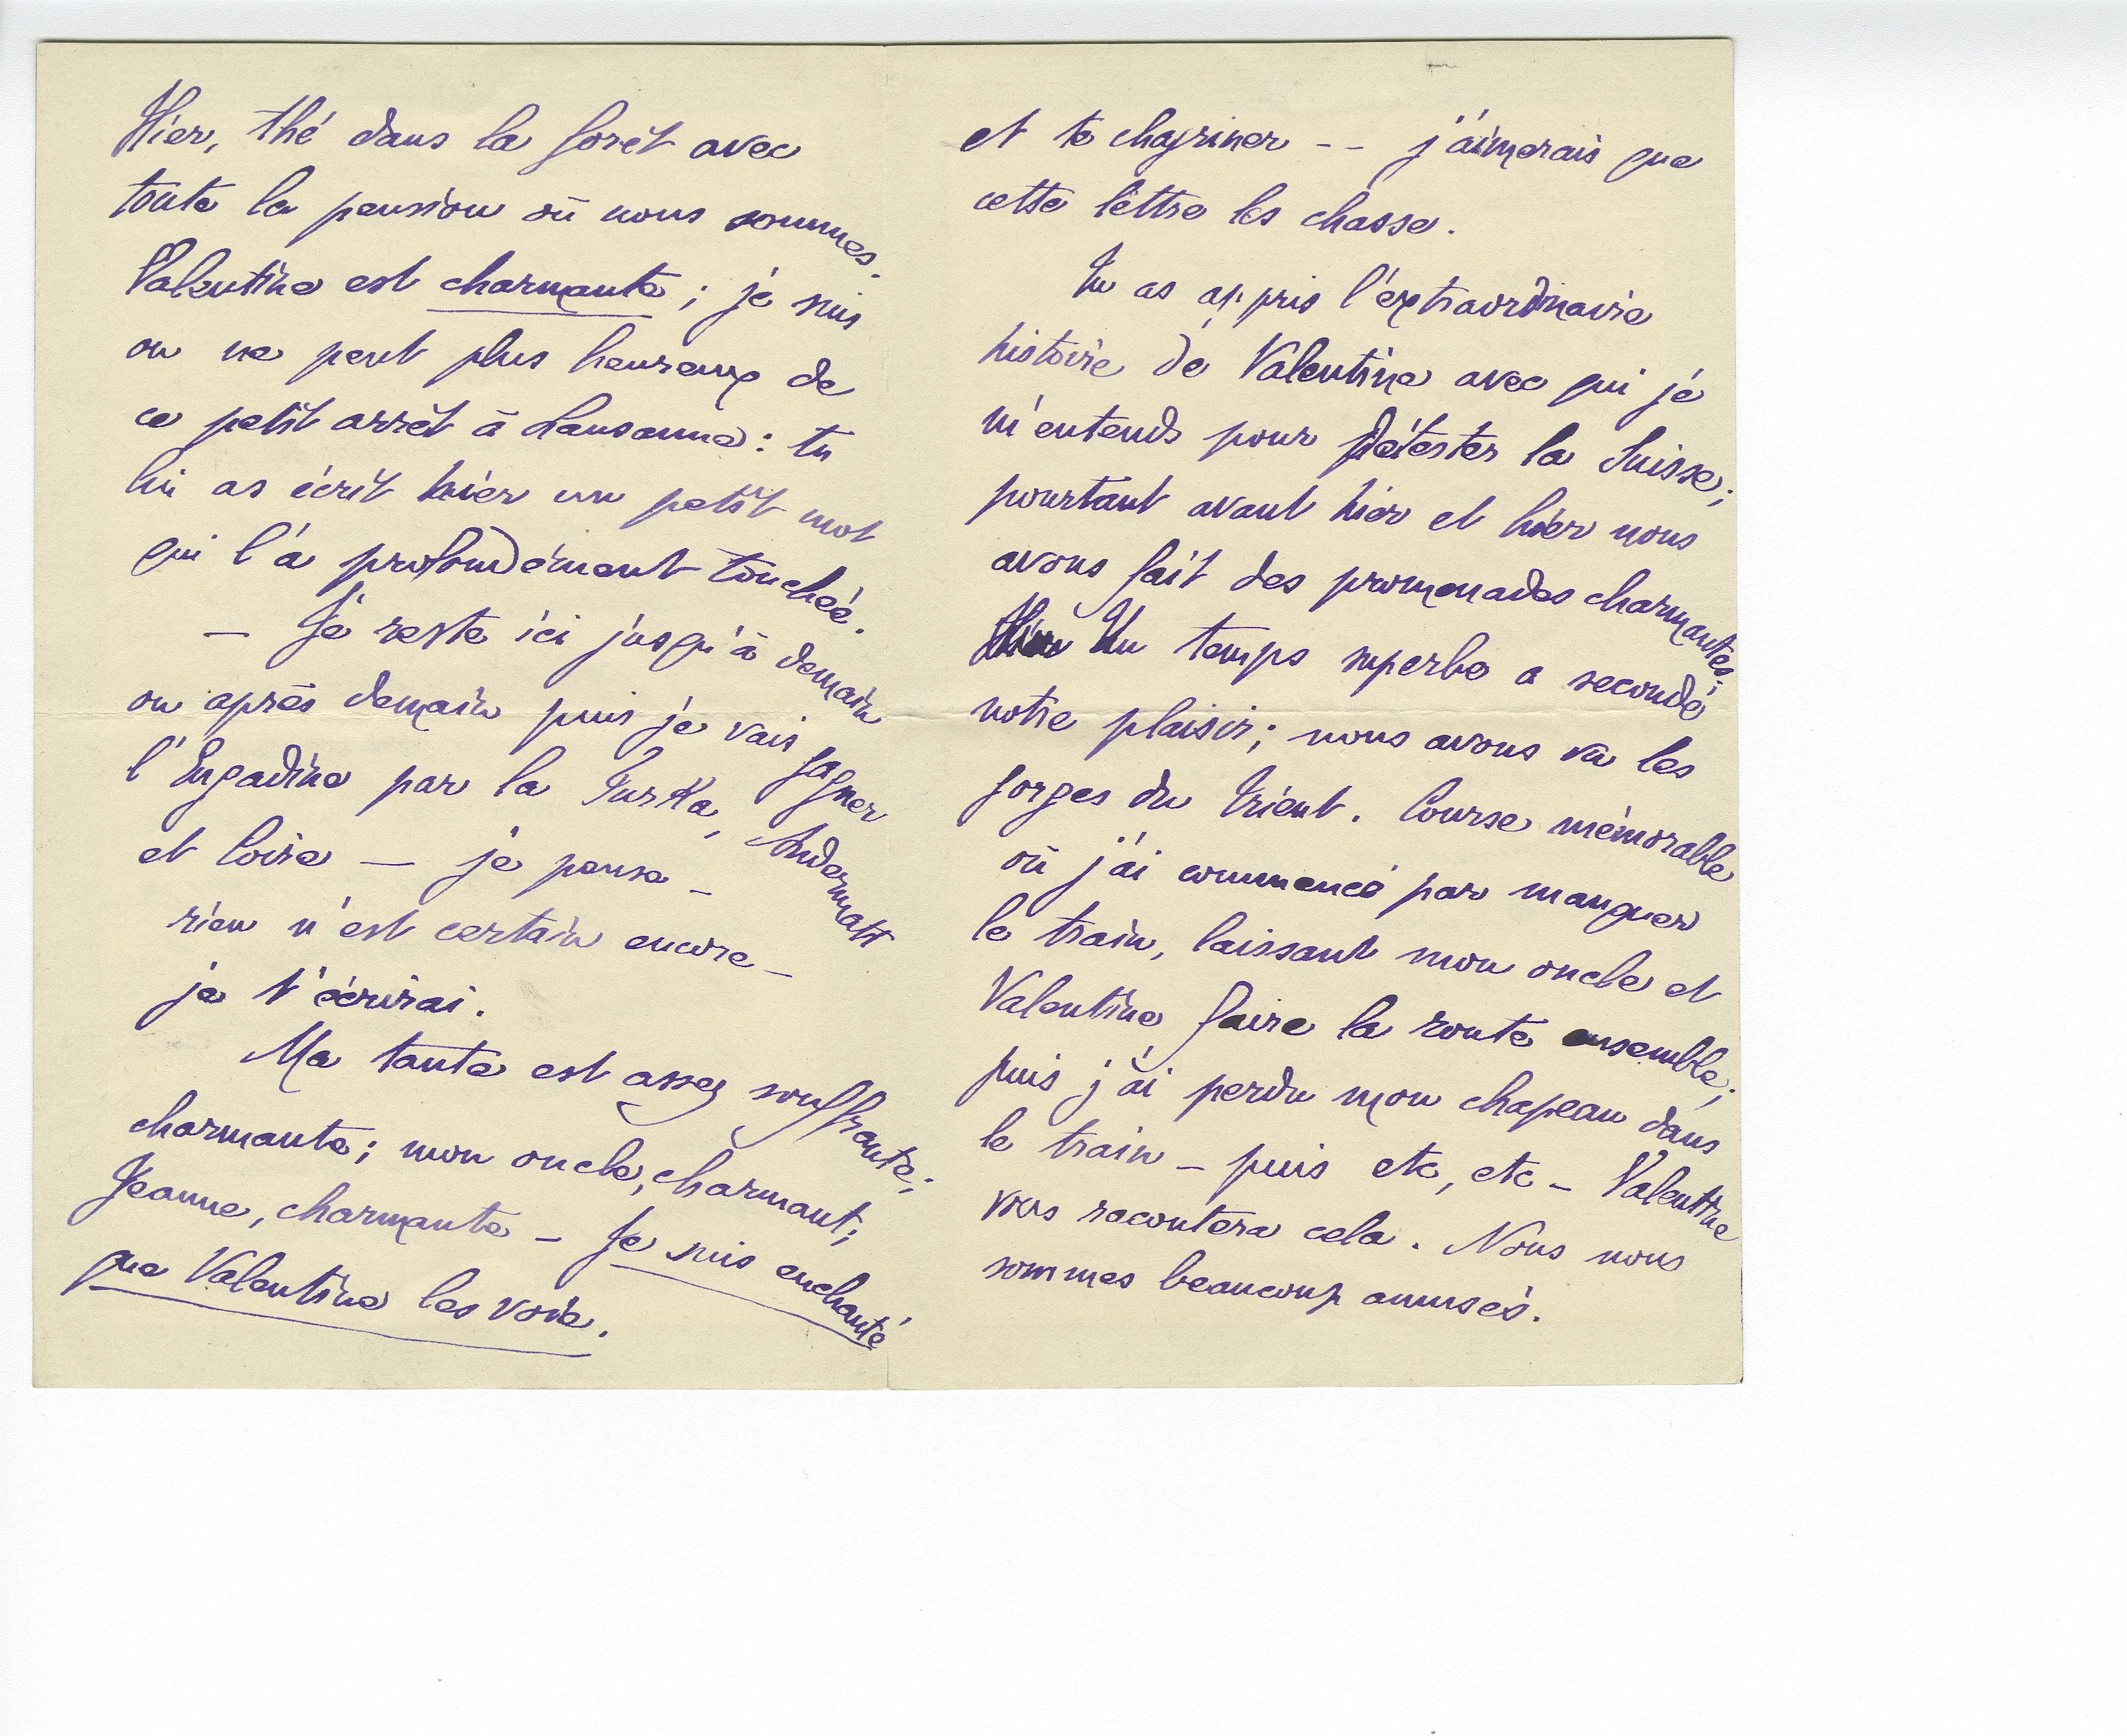 Hier, thé dans la forêt avec
toute la pension où nous sommes.
Valentine est charmante ; je suis
on ne peut plus heureux de
ce petit arrêt à Lausanne : tu
lui as écrit hier un petit mot
qui l'a profondément touchée.
— Je reste ici jusqu'à demain
ou après demain puis je vais gagner
l'Engadine par la Furka, Andermatt
et Coire — je pense —
rien n'est certain encore —
je t'écrirai.
Ma tante est assez souffrante ;
charmante ; mon oncle, charmant ;
Jeanne, charmante — Je suis enchanté
que Valentine les voie.
et te chagriner -- j'aimerais que
cette lettre les chasse.
Tu as appris l'extraordinaire
histoire de Valentine avec qui je
m'entends pour détester la Suisse ;
pourtant avant hier et hier nous
avons fait des promenades charmantes.
Hier Un temps superbe a secondé
notre plaisir ; nous avons vu les
gorges du Trient. Course mémorable
où j'ai commencé par manquer
le train, laissant mon oncle et
Valentine faire la route ensemble ;
puis j'ai perdu mon chapeau dans
le train — puis etc, etc — Valentine
vous racontera cela. Nous nous
sommes beaucoup amusés.